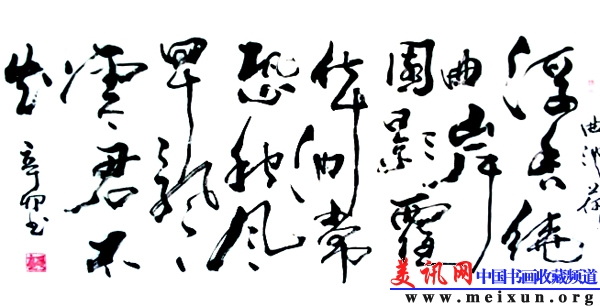 曲池荷
浮香繞
曲岸
圓影覆
華池常
恐秋风
早飘
零君不
知
辛卯书
美讯网 中国书画收藏频道
www.meixun.org